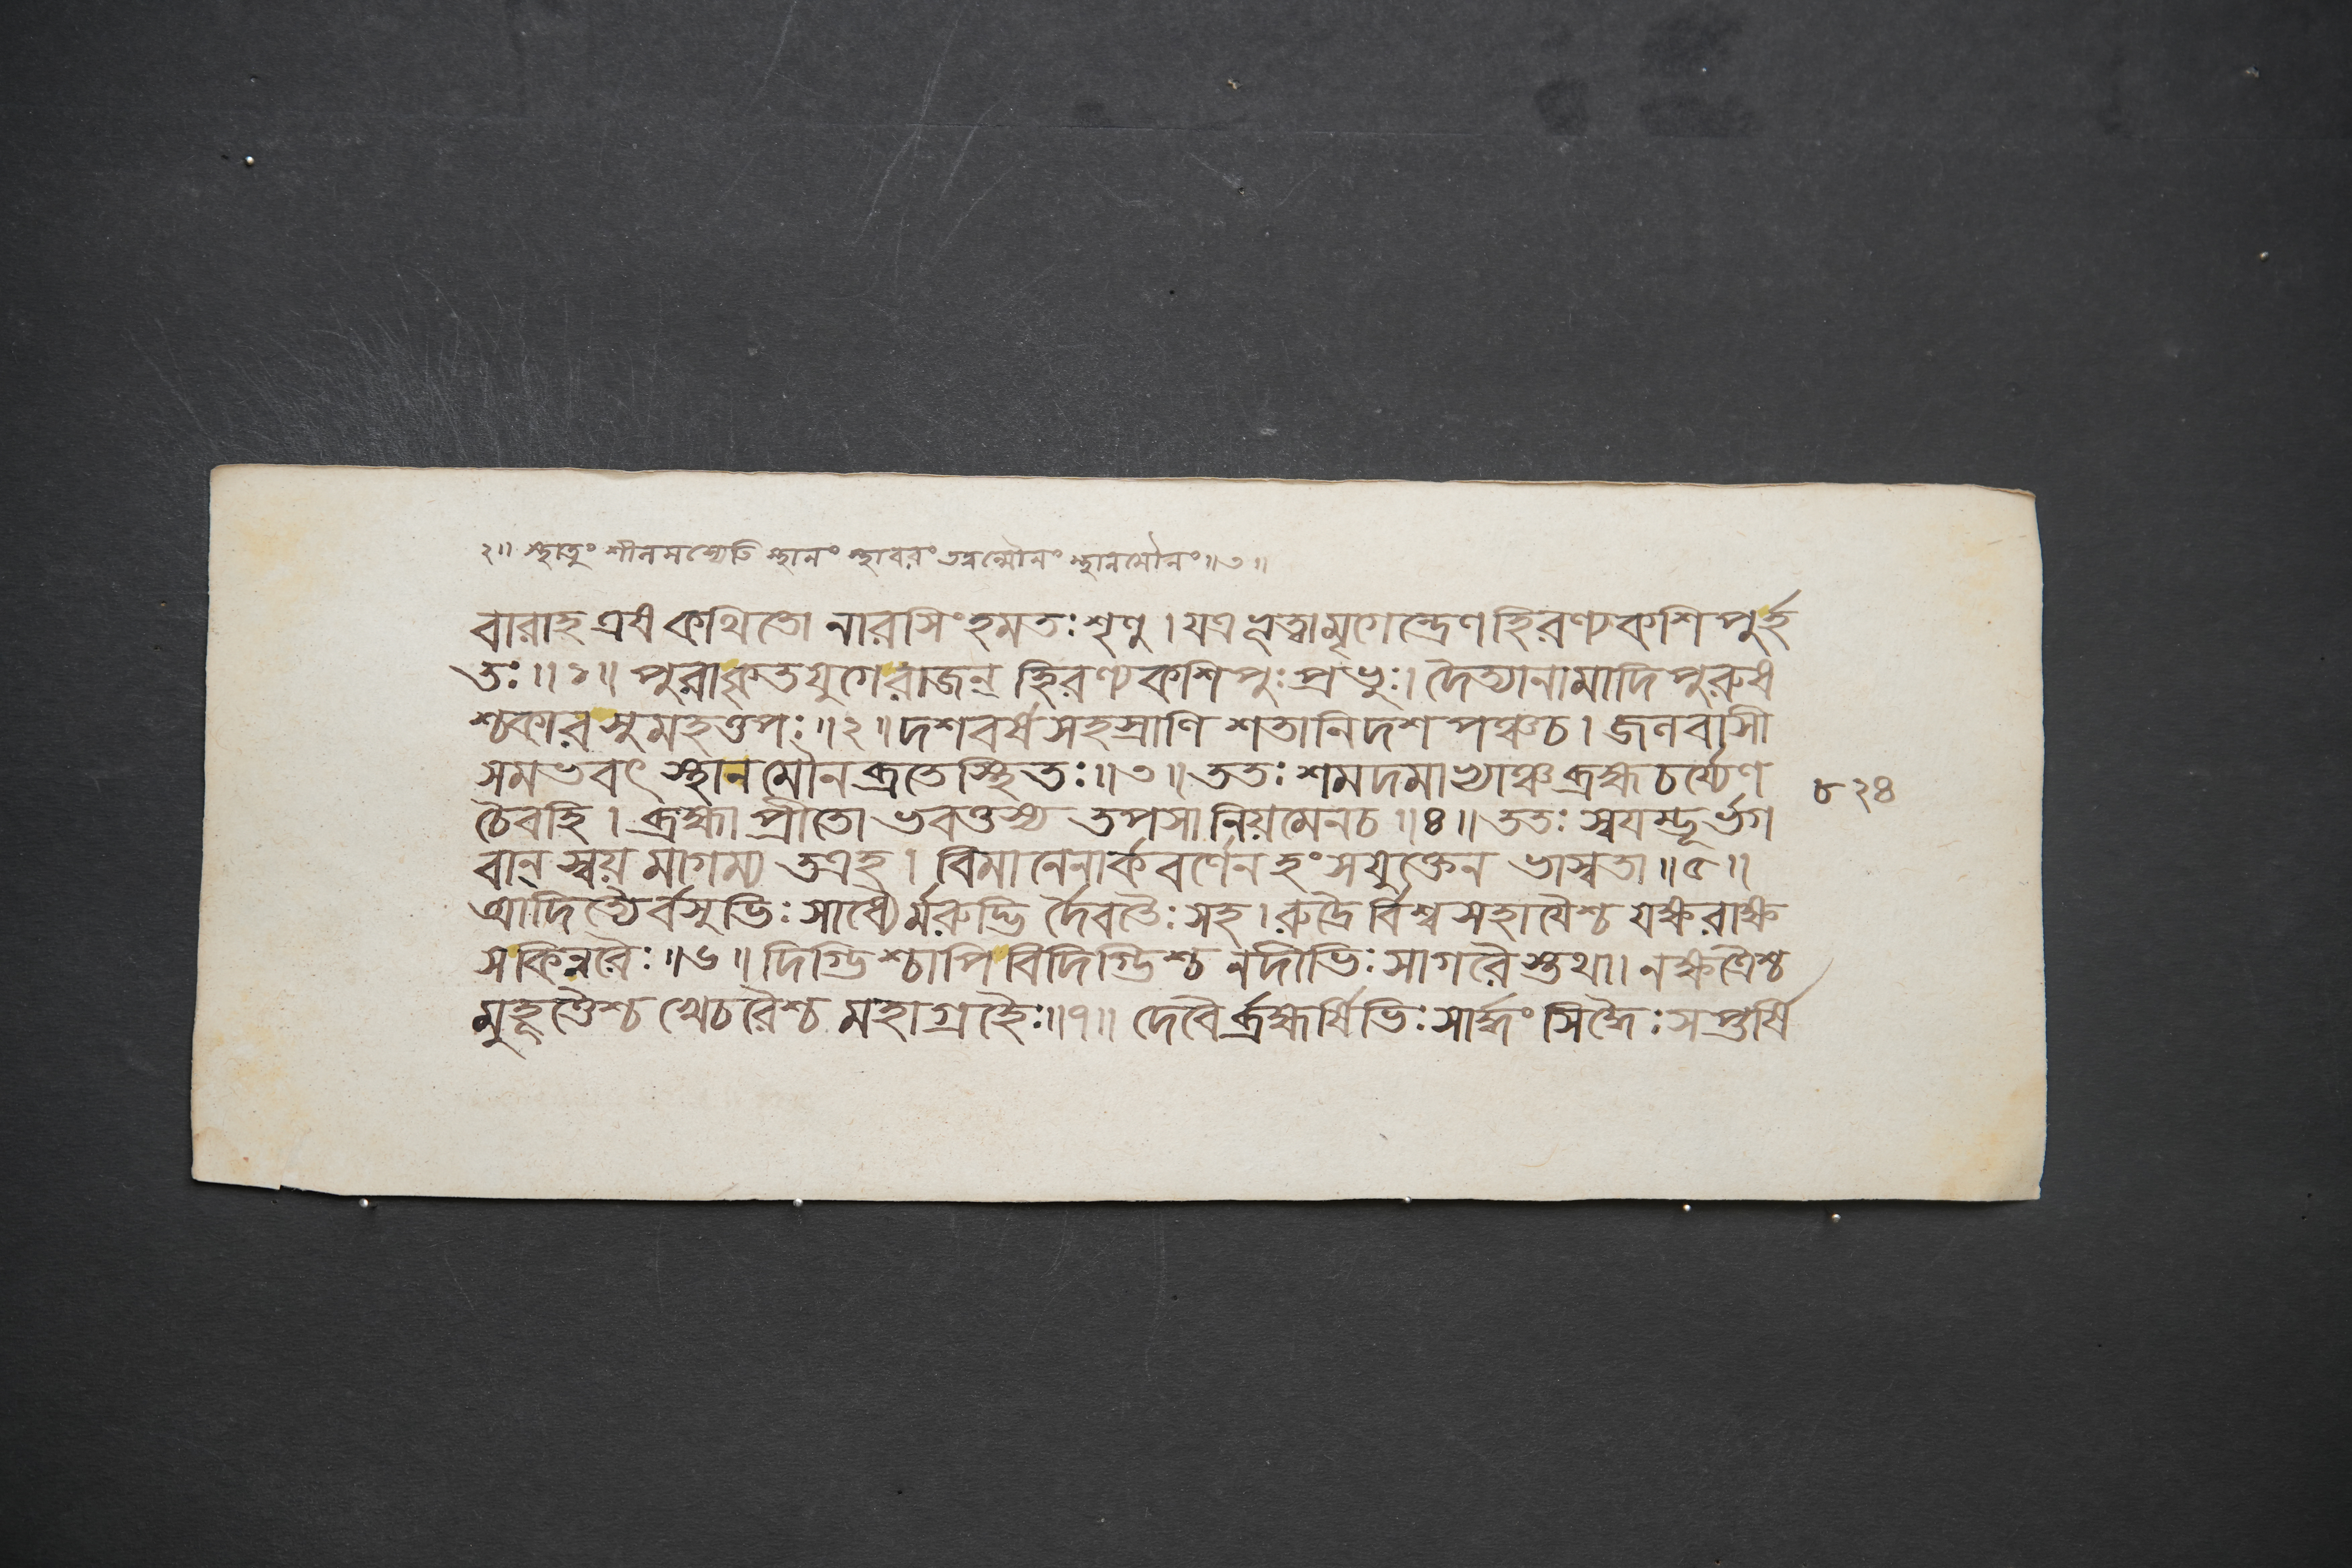 ২॥ স্থাতুং শীলমস্যেতি স্থানং স্থাবরং তদ্বন্মৌনং স্থানমৌনং॥৩॥
বারাহ এষ কথিতো নারসিংহমতঃ শৃণু । যত্র ভূত্বা মৃগেন্দ্রেণ হিরণ্যকশিপুর্হ
তঃ ॥১॥ পুরা কৃতযুগে রাজন্ হিরণ্যকশিপুঃ প্রভুঃ । দৈত্যানামাদিপুরুষ
শ্চকার সুমহত্তপঃ ॥২॥ দশবর্ষসহস্রাণি শতানি দশ পঞ্চ চ । জলবাসী
সমভবৎ স্থানমৌনব্রতেস্থিতঃ ॥৩॥ ততঃ শমদমাভ্যাঞ্চ ব্রহ্মচর্য্যেণ
চৈবহি । ব্রহ্মা প্রীতো ভবত্তস্য তপসা নিয়মেনচ ॥৪॥ ততঃ স্বয়ম্ভূর্ভগ
বান্ স্বয়মাগম্য তত্রহ । বিমানেনার্কবর্ণেন হংসযুক্তেন ভাস্বতা ॥৫॥
আদিত্যৈর্বসুভিঃ সাধ্যৈর্মরুদ্ভির্দৈবতৈঃ সহ । রুদ্রৈর্বিশ্বসহায়ৈশ্চ যক্ষরাক্ষ
সকিন্নরৈঃ ॥৬॥ দিগ্ভিশ্চাপি বিদিগ্ভিশ্চ নদীভিঃ সাগরৈস্তথা । নক্ষত্রৈশ্চ
মুহূর্ত্তৈশ্চ খেচরৈশ্চ মহাগ্রহৈঃ ॥৭॥ দেবৈর্ব্রহ্মর্ষিভিঃ সার্দ্ধং সিদ্ধৈঃ সপ্তর্ষি
৮২৪